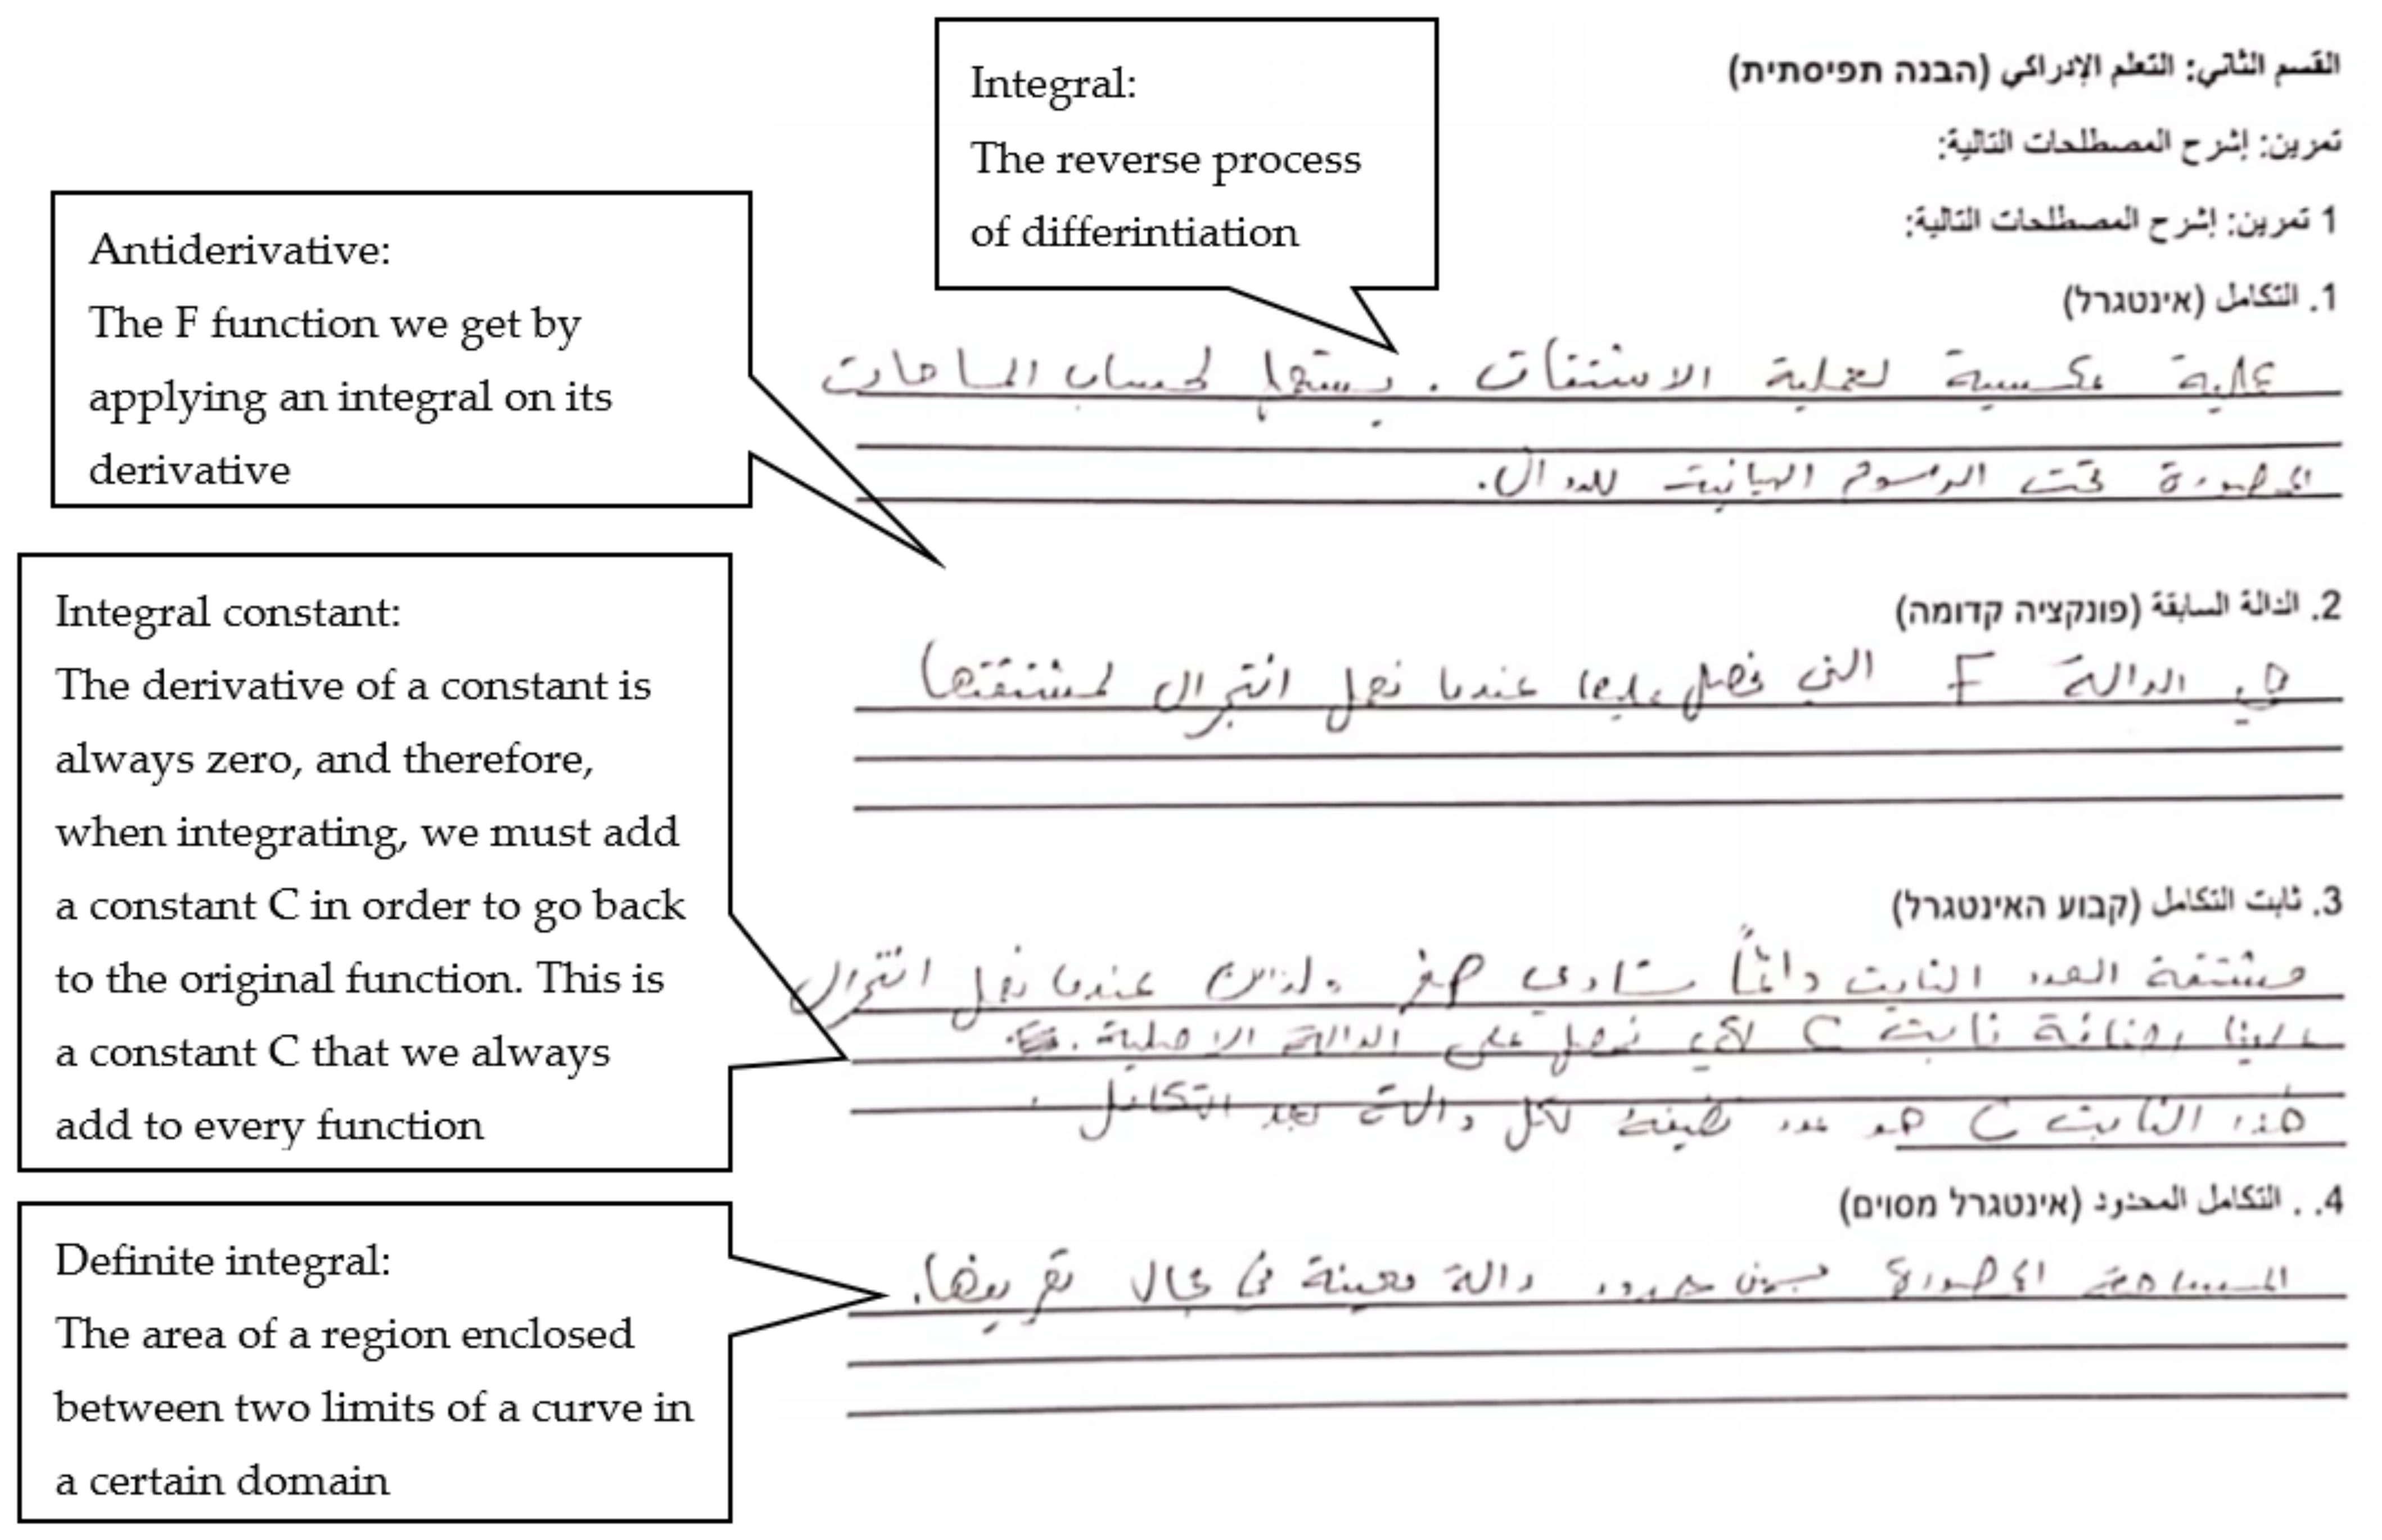 Integral:
The reverse process
of differintiation
Antiderivative:
The F function we get by
applying an integral on its
derivative
Integral constant:
The derivative of a constant is
always zero, and therefore,
when integrating, we must add
a constant C in order to go back
to the original function. This is
a constant C that we always
add to every function
Definite integral:
The area of a region enclosed
between two limits of a curve in
a certain domain
القسم الثاني: التعلم الإدراكي (הבנה תפיסתית)
تمرين: إشرح المصطلحات التالية:
1 تمرين: إشرح المصطلحات التالية:
1. التكامل (אינטגרל)
عملية عكسية لعملية الاشتقاق . يستعمل لحساب المساحات
المحصورة تحت الرسوم البيانية للدوال.
2. الدالة السابقة (פונקציה קדומה)
هي الدالة F التي نحصل عليها عندما نعمل انتجرال لمشتقتها
3. ثابت التكامل (קבוע האינטגרל)
مشتقة العدد الثابت دائماً ستساوي صفر ولذلك عندما نعمل انتجرال
علينا إضافة ثابت C لكي نحصل على الدالة الاصلية.
هذا الثابت C هو عدد نضيفه لكل دالة بعد التكامل.
4. . التكامل المحدود (אינטגרל מסוים)
المساحة المحصورة بين حدود دالة معينة في مجال تعريفها.